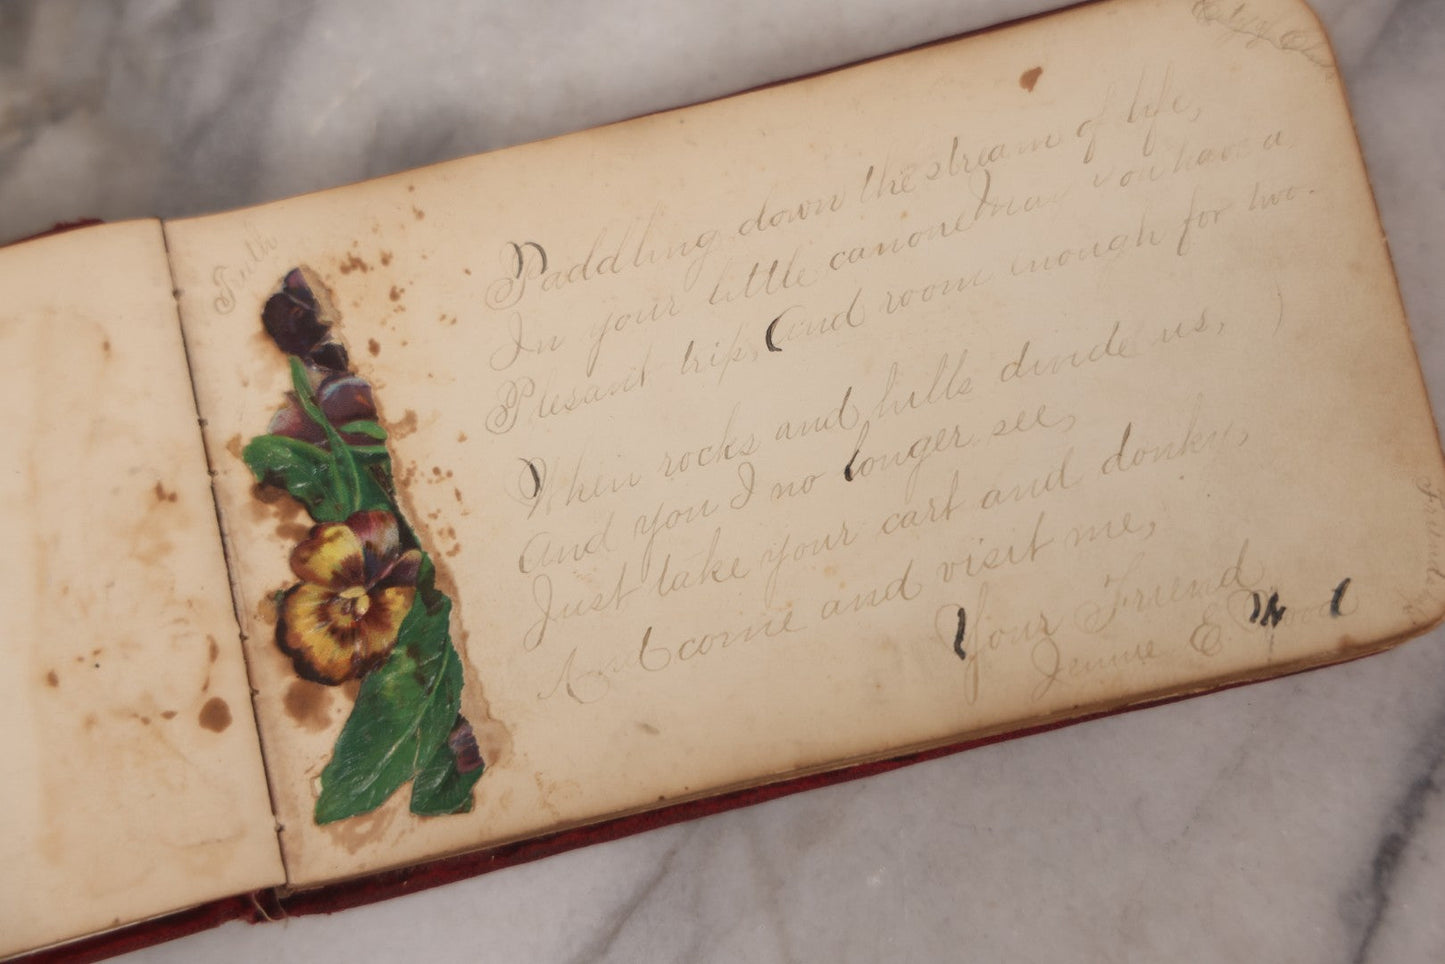 City of
Faith
Paddling down the stream of life,
In your little canone May you have a
Plesant trip, And room enough for two.
When rocks and hills divide us,
And you I no longer see,
Just take your cart and donky,
And come and visit me,
Your Friend
Jennie E. Wood